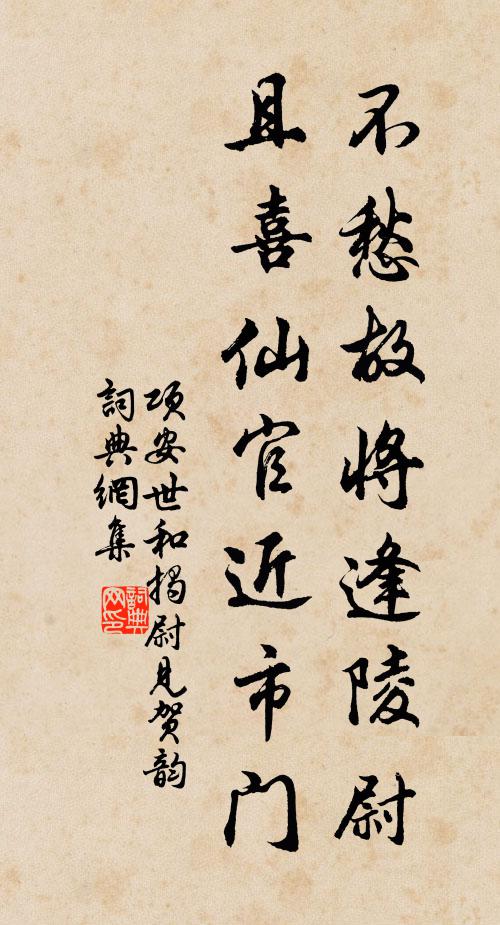 不愁故將逢陵尉
且喜仙官近市門
项安世和揭尉見贺韵
詞典網集
詞典网印